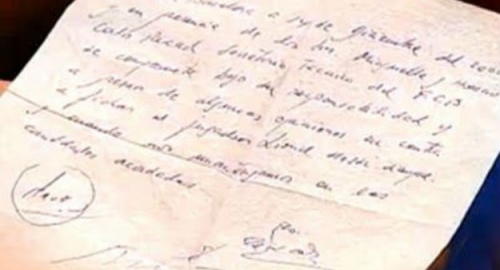 a 14 de Diciembre del 2000
y en presencia de los Srs Minguella y Horacio
Carles Rexach Secretario Técnico del F.C.B
se compromete bajo su responsabilidad y
a pesar de algunas opiniones en contra
a fichar al jugador Lionel Messi siempre
y cuando nos mantengamos en las
cantidades acordadas